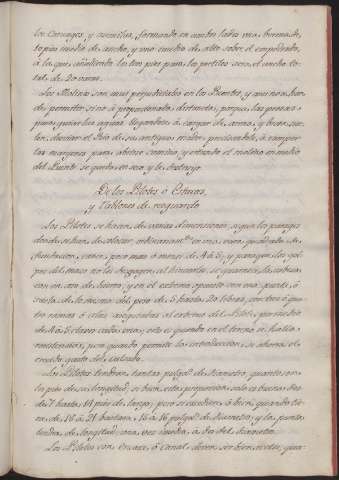 los Carruages, y acemilas, formando en ambos lados una buena de
to pies medio de ancho, y uno medio de alto sobre el empedrado,
à la que añadiendo los tres pies para los pretiles sera el ancho to-
tal de 20 varas.
Los Molinos son mui perjudiciales en los Puentes, y aun no se han
de permitir, sino à proporcionada distancia, porque las presas
para guiar las aguas llegandose à cargar de arena, y broza, sue-
len desviar el Rio de su antigua madre precisandole, à romper
las margenes para abrirse camino, y estando el molino en medio
del Puente se queda en seco y le destruye.
De los Pilotes ò Estacas,
y Tablones de resguardo
Los Pilotes se hacen de varias dimensiones, segun los parages
donde se han de colocar ordinariamte
distribucion, varas, pero mas ò menos de 4 à 5, y para que los gol-
pes del mazo no los desgajen al hincarlos, se guarnece la cabeza
con un aro de hierro, y en el extremo opuesto con una punta, ò
de lo mismo del peso de 5 hasta 20 libras, con tres ò qua-
tro ramas ò alas aseguradas al extremo del Pilote, por medio
de 4 à 5 clavos cada una; esto es quando en el terreno se halla
resistencia, pero quando permite la introduccion se ahorra el
crecido gasto del calzado.
Los Pilotes tendran tantas pulgs de diametro, quantos son
los pies de su longitud, si bien esta proporcion solo es buena des-
de 7 hasta 14 pies de largo, pero excediendo ò bien quando tie-
ne de 18 à 21 bastara, 15 à 16 pulgs de diametro, y la punta
tendra de longitud, una vez y media, à dos del diametro.
Los Pilotes con encaxe ò canal deven ser bien rectos, qua-